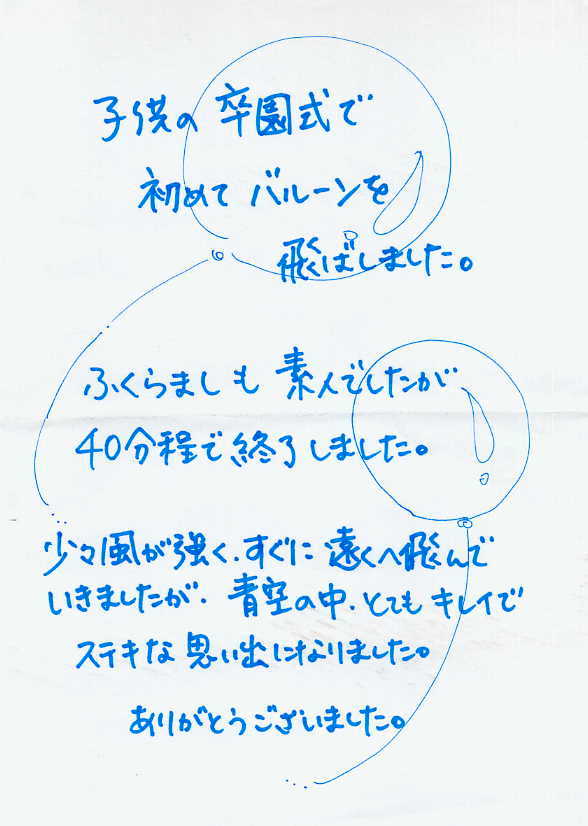 子供の卒園式で
初めてバルーンを
飛ばしました。
ふくらましも素人でしたが
40分程で終了しました。
少々風が強く、すぐに遠くへ飛んで
いきましたが、青空の中、とてもキレイで
ステキな思い出になりました。
ありがとうございました。